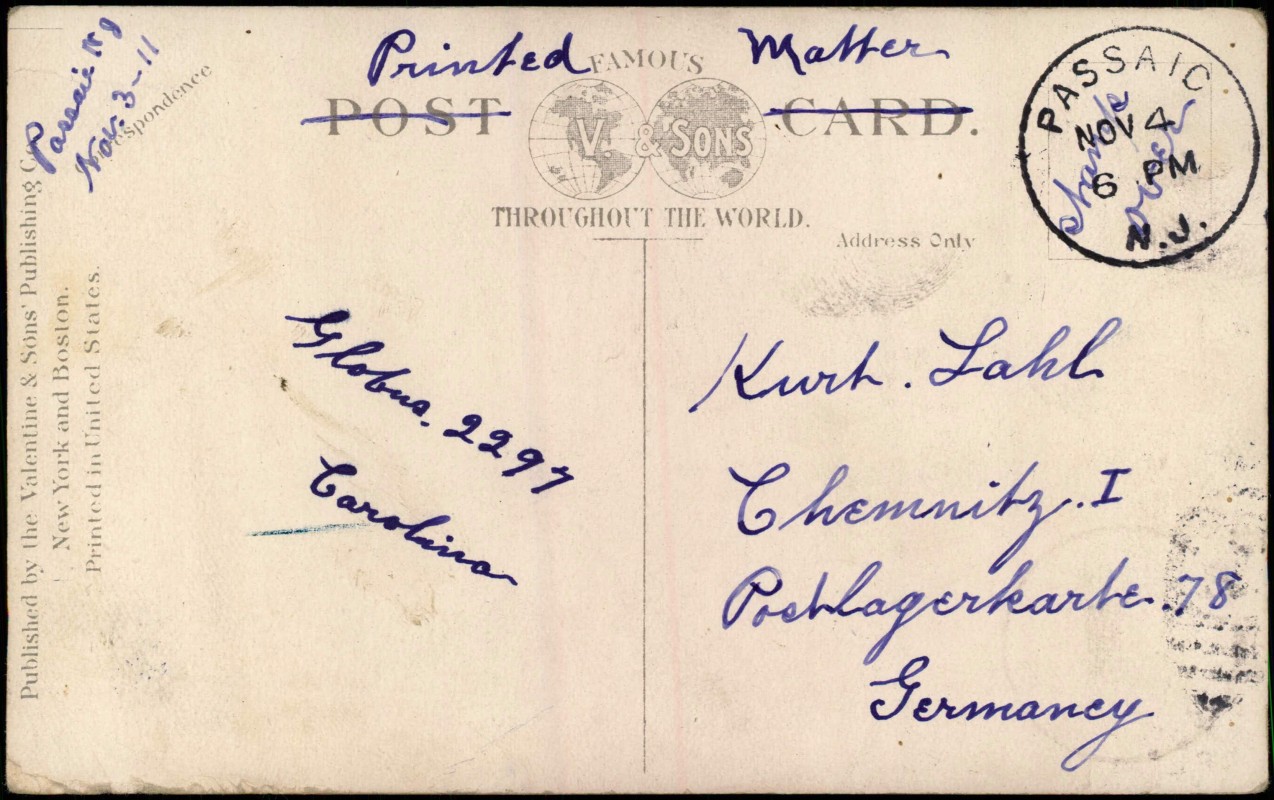 Printed Matter
FAMOUS
POST CARD.
V. & SONS
THROUGHOUT THE WORLD.
Address Only
Nov. 3-11
PASSAIC
NOV 4
6 PM
N.J.
over
Published by the Valentine & Sons' Publishing
New York and Boston.
Printed in United States.
Globus. 2297
Carolina
Kurt. Lahl
Chemnitz. I
Postlagerkarte. 78
Germaney